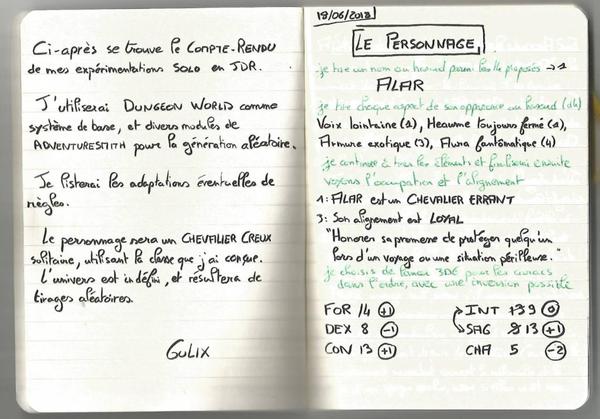 Ci-après se trouve le COMPTE-RENDU
de mes expérimentations SOLO en JDR.
J'utiliserai DUNGEON WORLD comme
système de base, et divers modules de
ADVENTURESMITH pour la génération aléatoire.
Je listerai les adaptations éventuelles de
règles.
Le personnage sera un CHEVALIER CREUX
solitaire, utilisant la classe que j'ai conçue.
L'univers est indéfini, et résultera de
tirages aléatoires.
GULIX
19/06/2018
LE PERSONNAGE
je tire un nom au hasard parmi les 14 proposés → 1
ALAR
je tire chaque aspect de son apparence au hasard (d4)
Voix lointaine (1), Heaume toujours fermé (1),
Armure exotique (3), Aura fantômatique (4)
je continue à tirer les éléments et finaliserai ensuite
voyons l'occupation et l'alignement
1: ALAR est un CHEVALIER ERRANT
3: Son alignement est LOYAL
"Honorer sa promesse de protéger quelqu'un
lors d'un voyage ou une situation périlleuse."
je choisis de lancer 3D6 pour les caracs
dans l'ordre, avec une inversion possible
FOR 14 +1 INT 9 0
DEX 8 -1 SAG 13 +1
CON 13 +1 CHA 5 -2